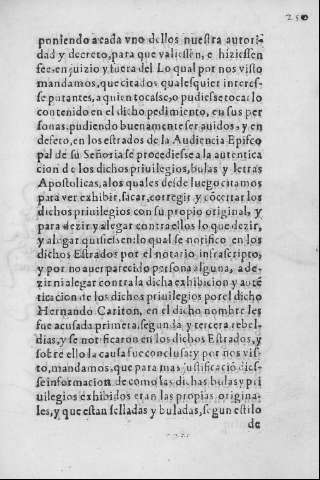 250
poniendo a cada vno dellos nuestra autori-
dad y decreto, para que valiessẽ, e hiziessẽn
fee en juizio y fuera del Lo qual por nos visto
mandamos, que citados qualesquier interes-
se putantes, a quien tocasse, o pudiesse tocar lo
contenido en el dicho pedimiento, en sus per
sonas, pudiendo buenamente ser auidos, y en
defeto, en los estrados de la Audiencia Episco
pal de su Señoria se procediesse a la autentica
cion de los dichos priuilegios, bulas y letras
Apostolicas, a los quales desde luego citamos
para ver exhibir, sacar, corregir y cõcertar los
dichos priuilegios con su propio original, y
para dezir y alegar contra ellos lo que dezir,
y alegar quisiessen: lo qual se notifico en los
dichos Estrados por el notario infrascripto,
y por no auer parecido persona alguna, a de-
zir ni alegar contra la dicha exhibicion y autẽ
ticacion de los dichos priuilegios por el dicho
Hernando Cariton, en el dicho nombre les
fue acusada primera, segunda y tercera rebel-
dias, y se notificaron en los dichos Estrados, y
sobre ello la causa fue conclusa: y por nos vis-
to, mandamos, que para mas justificació dies-
se informacion de como las dichas bulas y pri
uilegios exhibidos eran las propias origina-
les, y que estan selladas y buladas, segun estilo
de